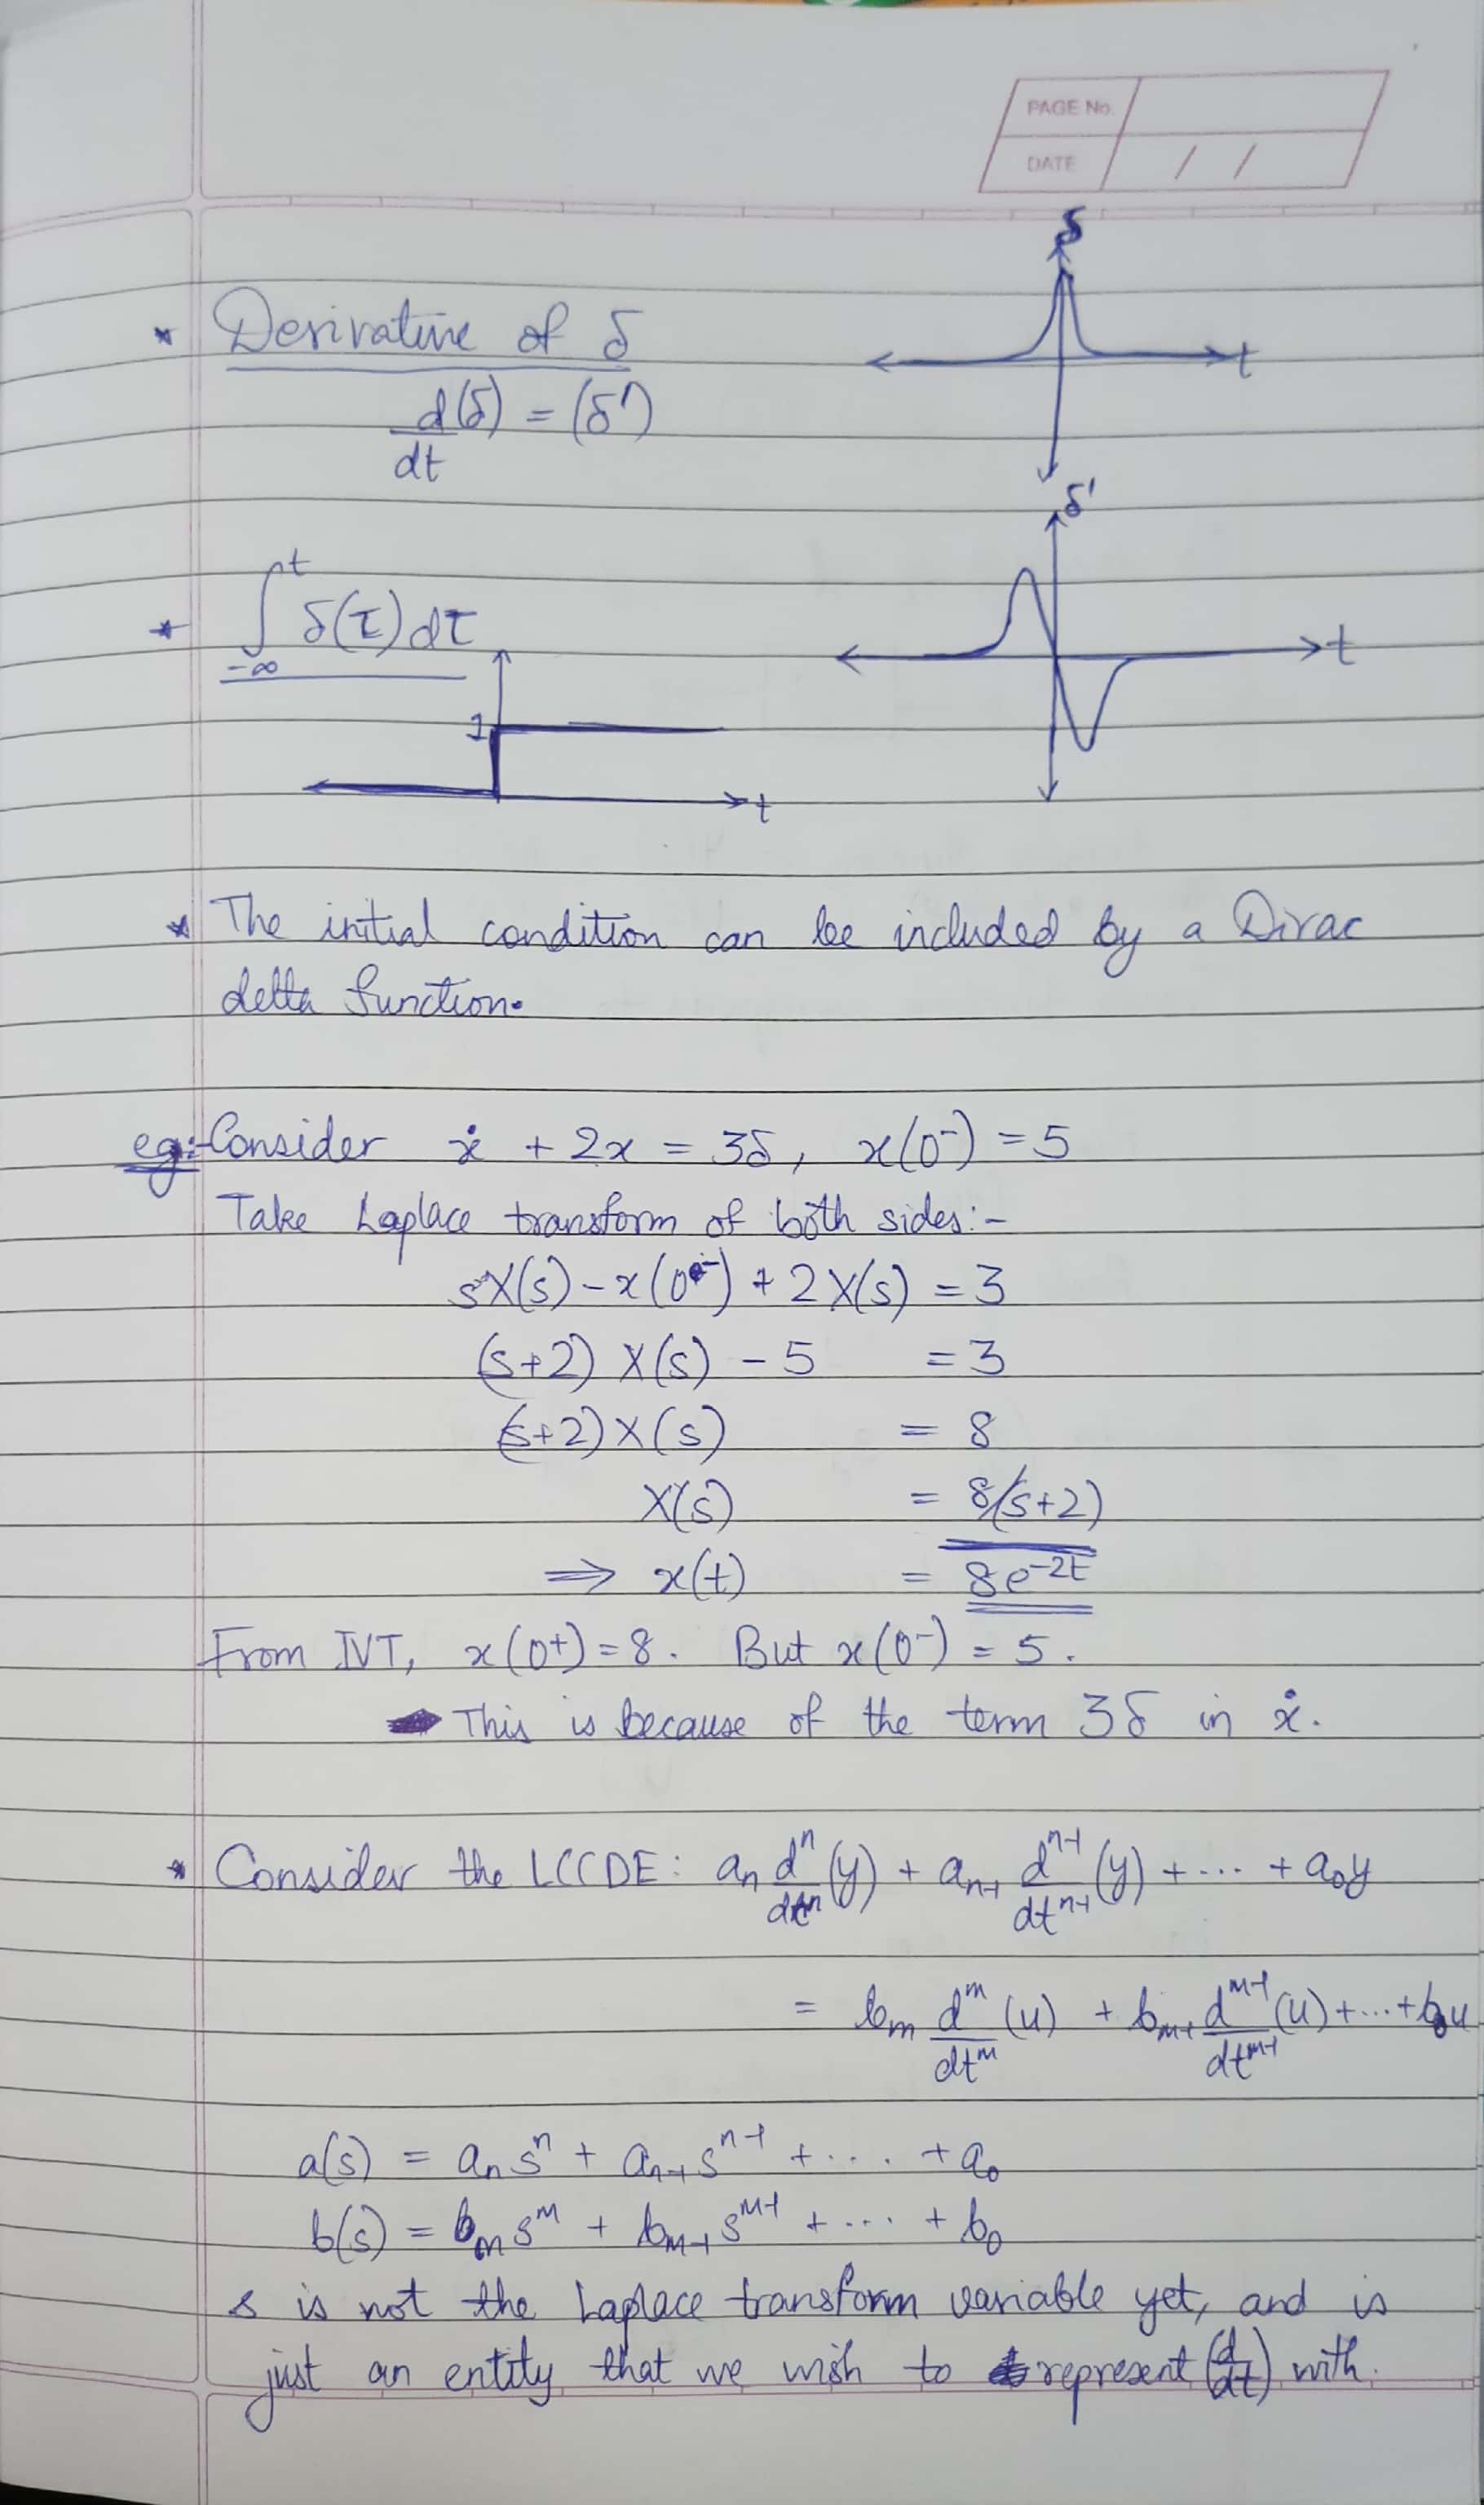 PAGE No.
DATE / /
δ
t
* Derivative of δ
d(δ)/dt = (δ')
δ'
t
* ∫_{-∞}^{t} δ(τ)dτ
1
t
* The initial condition can be included by a Dirac
delta function.
eg:- Consider ẋ + 2x = 3δ, x(0⁻) = 5
Take Laplace transform of both sides:-
sX(s) - x(0⁻) + 2X(s) = 3
(s+2) X(s) - 5 = 3
(s+2)X(s) = 8
X(s) = 8/(s+2)
⟹ x(t) = 8e^{-2t}
From IVT, x(0+) = 8. But x(0⁻) = 5.
This is because of the term 3δ in ẋ.
* Consider the LCCDE: a_n d^n/dt^n (y) + a_{n-1} d^{n-1}/dt^{n-1} (y) + ... + a_0y
= b_m d^m/dt^m (u) + b_{m-1} d^{m-1}/dt^{m-1} (u) + ... + b_0u
a(s) = a_n s^n + a_{n-1} s^{n-1} + .... + a_0
b(s) = b_m s^m + b_{m-1} s^{m-1} + ... + b_0
s is not the Laplace transform variable yet, and is
just an entity that we wish to represent (d/dt) with.